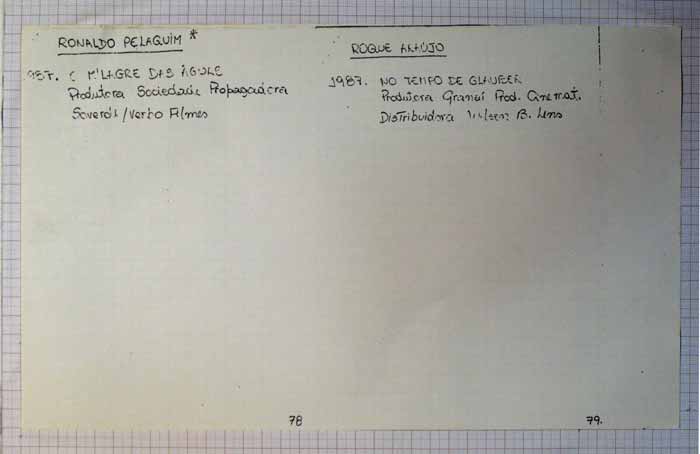 RONALDO PELAQUIM *
987. C MILAGRE DAS ÁGUAS
Produtora Sociedade Propagadora
Filmes
78
ROQUE ARAÚJO
1987. NO TEMPO DE GLAUBER
Produtora Grandi Prod. Cinemat.
Distribuidora B. Lins
79.